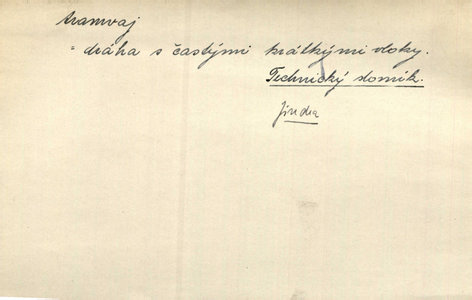 tramvaj
= dráha s častými krátkými vlaky.
Technický slovník.
Jindra